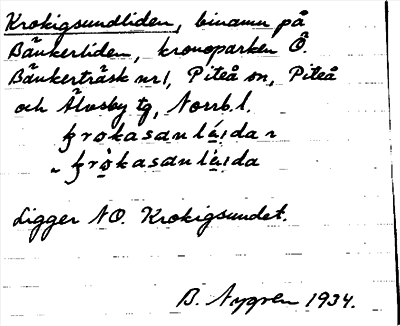 Krokigsundliden, binamn på
Bänkerliden, kronoparken Ö.
Bänkerträsk nr 1, Piteå sn, Piteå
och Älvsby tg, Norrb. l.
krokasanláida n
krokasanláida
Ligger NO. Krokigsundet.
B. Nygren 1934.